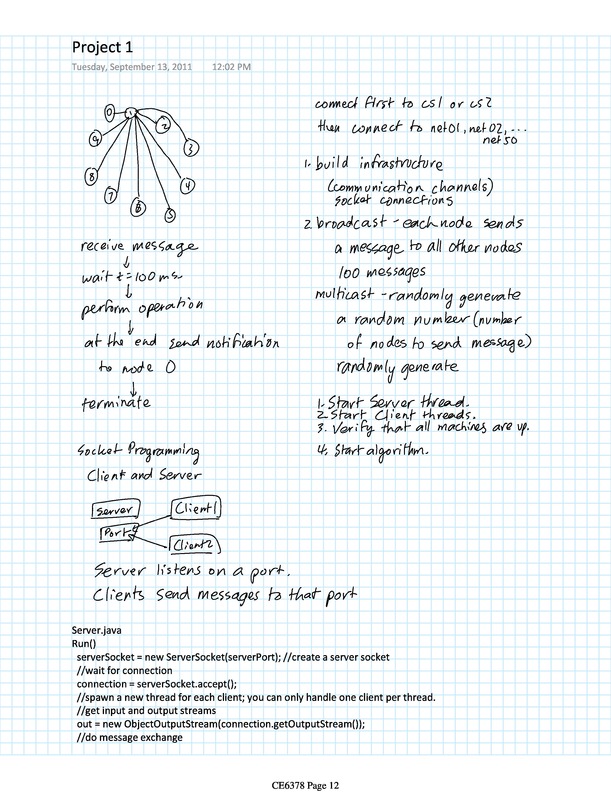 Project 1
Tuesday, September 13, 2011 12:02 PM
0
1
2
3
4
5
6
7
8
9
receive message
wait t = 100 ms
perform operation
at the end send notification
to node 0
terminate
Socket Programming
Client and Server
Server
Port
Client1
Client2
Server listens on a port.
Clients send messages to that port
connect first to cs1 or cs2
then connect to net01, net02, ...
net50
1. build infrastructure
(communication channels)
socket connections
2. broadcast - each node sends
a message to all other nodes
100 messages
multicast - randomly generate
a random number (number
of nodes to send message)
randomly generate
1. Start Server thread.
2. Start Client threads.
3. Verify that all machines are up.
4. Start algorithm.
Server.java
Run()
serverSocket = new ServerSocket(serverPort); //create a server socket
//wait for connection
connection = serverSocket.accept();
//spawn a new thread for each client; you can only handle one client per thread.
//get input and output streams
out = new ObjectOutputStream(connection.getOutputStream());
//do message exchange
CE6378 Page 12